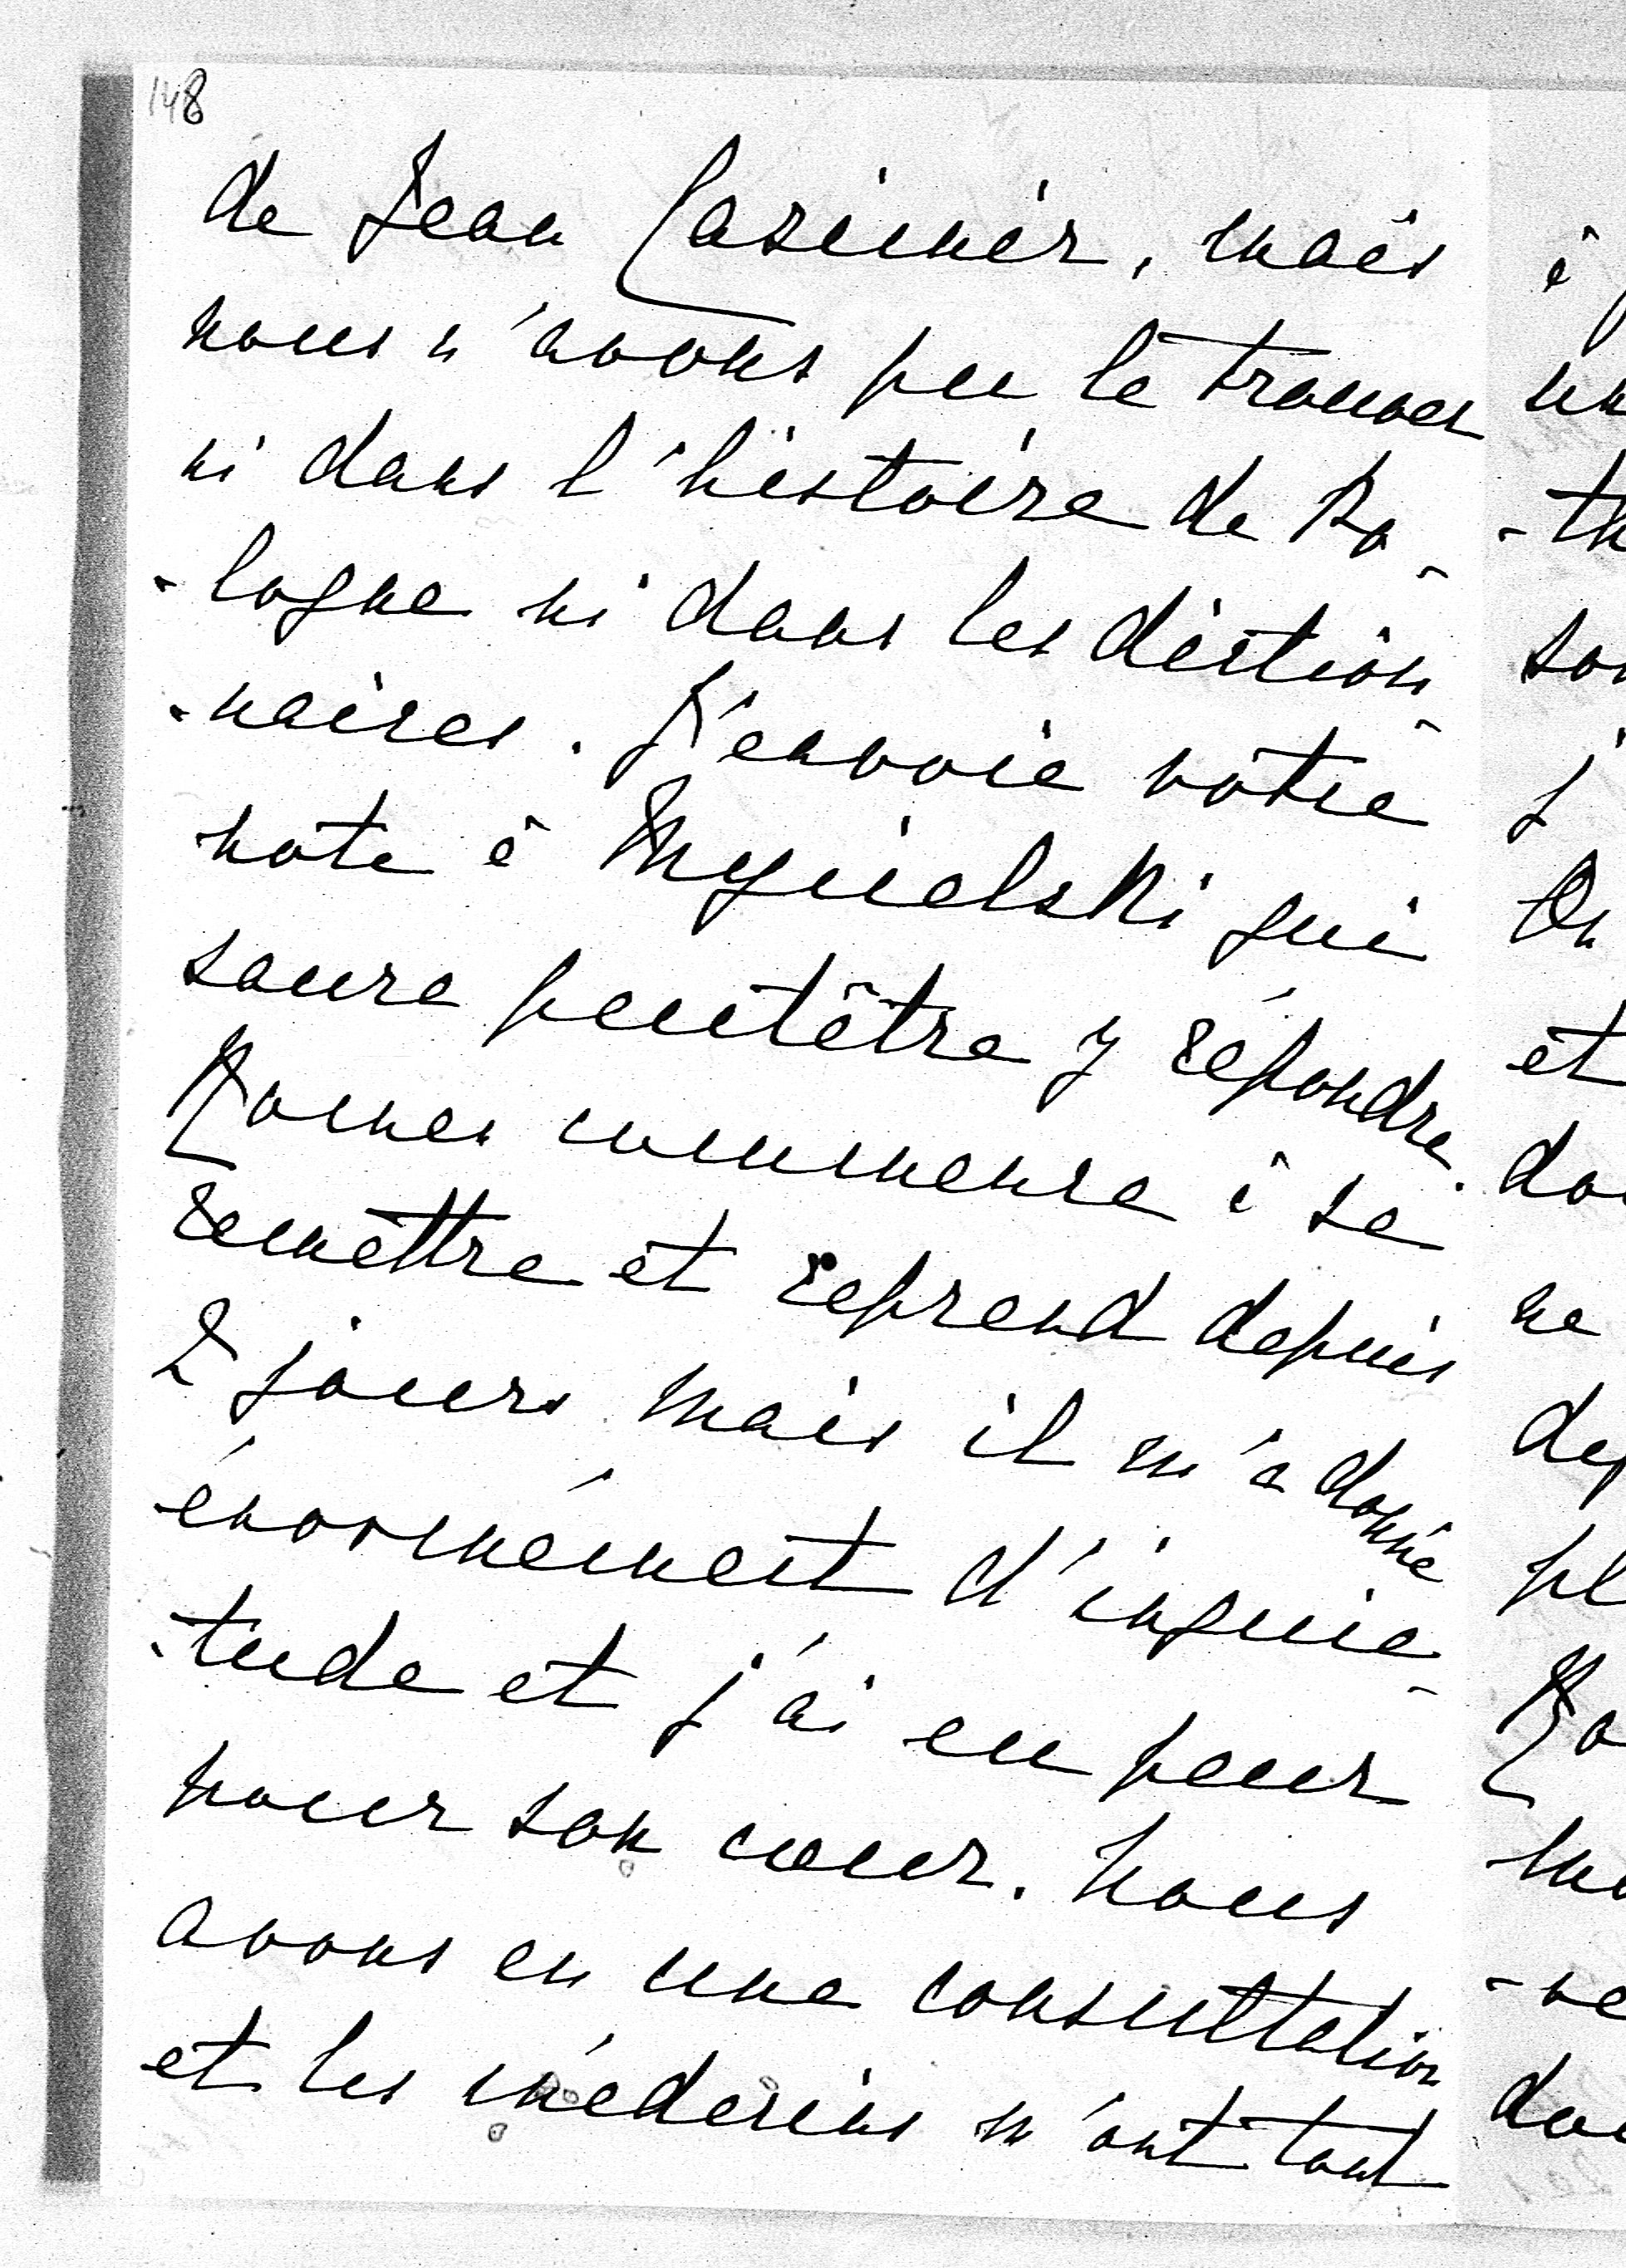 148
de Jean Casimir, mais
nous n'avons pu le trouver
ni dans l'histoire de Po-
-logne ni dans les diction-
-naires. J'envoie votre
note à Mycielski qui
saura peutêtre y répondre.
Roman commence à se
remettre et reprend depuis
2 jours mais il m'a donné
énormément d'inquié-
-tude et j'ai eu peur
pour son cœur. Nous
avons eu une consultation
et les médecins m'ont tout